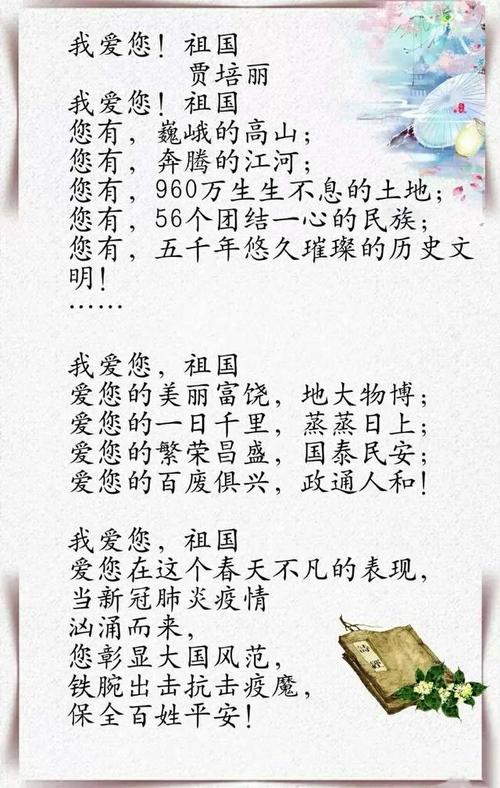 我爱您！祖国
贾培丽
我爱您！祖国
您有，巍峨的高山；
您有，奔腾的江河；
您有，960万生生不息的土地；
您有，56个团结一心的民族；
您有，五千年悠久璀璨的历史文
明！
……
我爱您，祖国
爱您的美丽富饶，地大物博；
爱您的一日千里，蒸蒸日上；
爱您的繁荣昌盛，国泰民安；
爱您的百废俱兴，政通人和！
我爱您，祖国
爱您在这个春天不凡的表现，
当新冠肺炎疫情
汹涌而来，
您彰显大国风范，
铁腕出击抗击疫魔，
保全百姓平安！